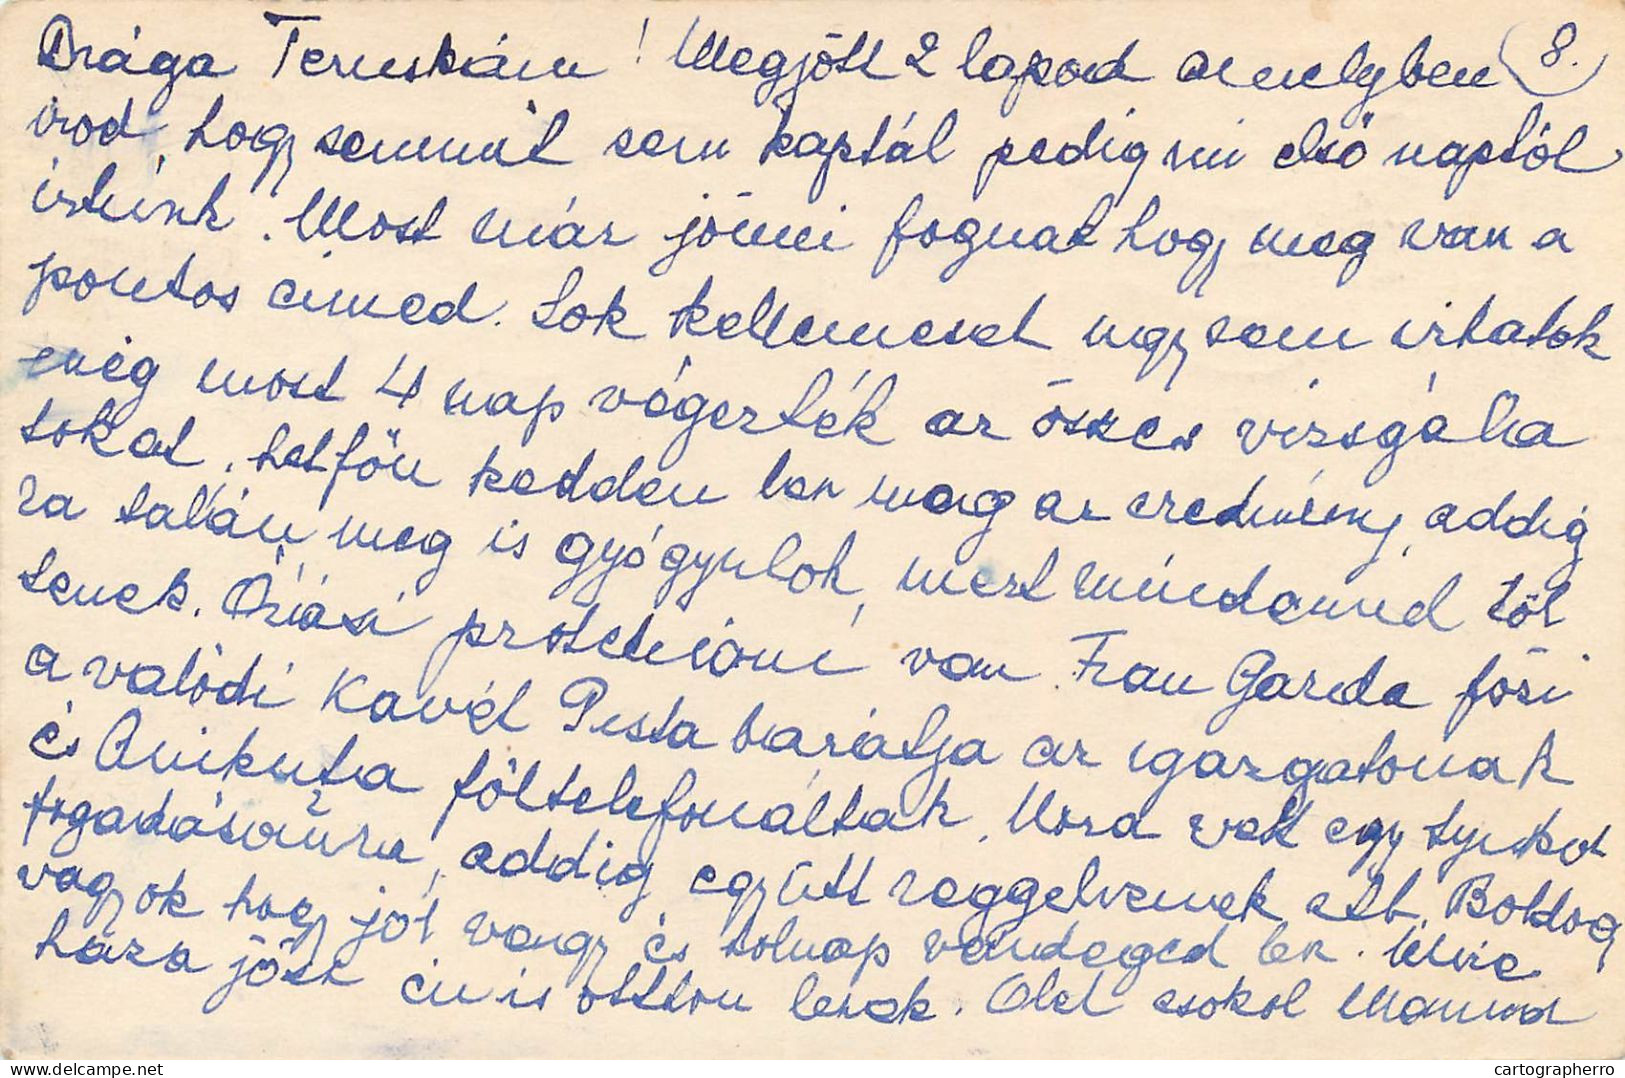 Drága Teruskám! Megjött 2 lapod amelyben 8.
irod, hogy semmit sem kaptál pedig mi első naptól
irtunk. Most már jönni fognak hogy meg van a
pontos cimed. Sok kellemeset ugy sem irhatok
még most 4 nap végezték az összes vizsgála
tokat, hetfön kedden lesz meg az eredmény, addig
ra talán meg is gyógyulok, mert mindennel töl
tenek. Óriási protekcióm van. Frau Garda főzi
a valódi Kavét Pista barátja az igazgatonak
és Anikuta föltelefonáltak. Mora vek egy tyukot
fogadásunkra, addig együtt reggelizünk stb. Boldog
vagyok hogy jól vagy és tolnap vendeged lesz. Mire
háza jössz én is otthon leszek. Ölel csokol Mamma
www.delcampe.net
cartographerro